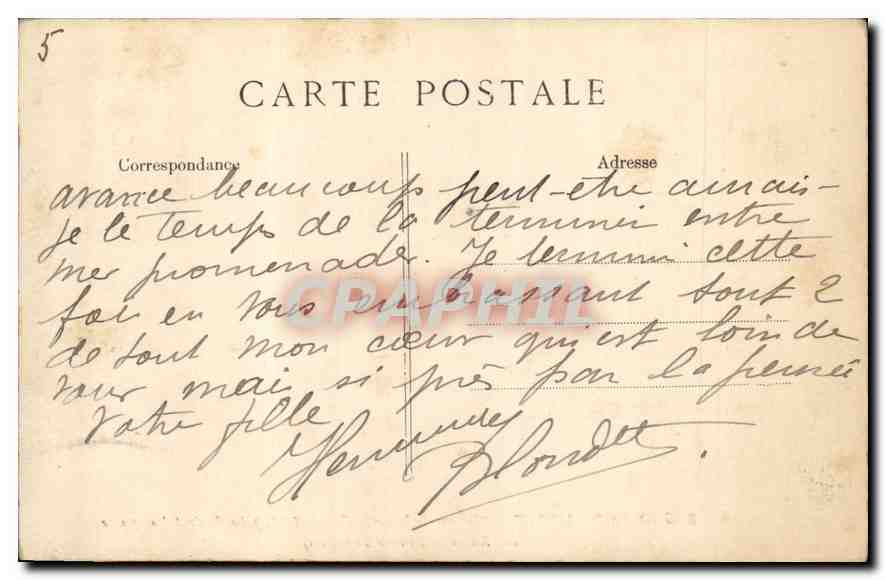 5
CARTE POSTALE
Correspondance
Adresse
avance beaucoup peut-etre aurais-
je le temps de la terminer entre
mes promenades. Je termine cette
fois en vous embrassant tout 2
de tout mon cœur qui est loin de
vous mais si près par la pensée
Votre fille
Blondet
CPAPHIL